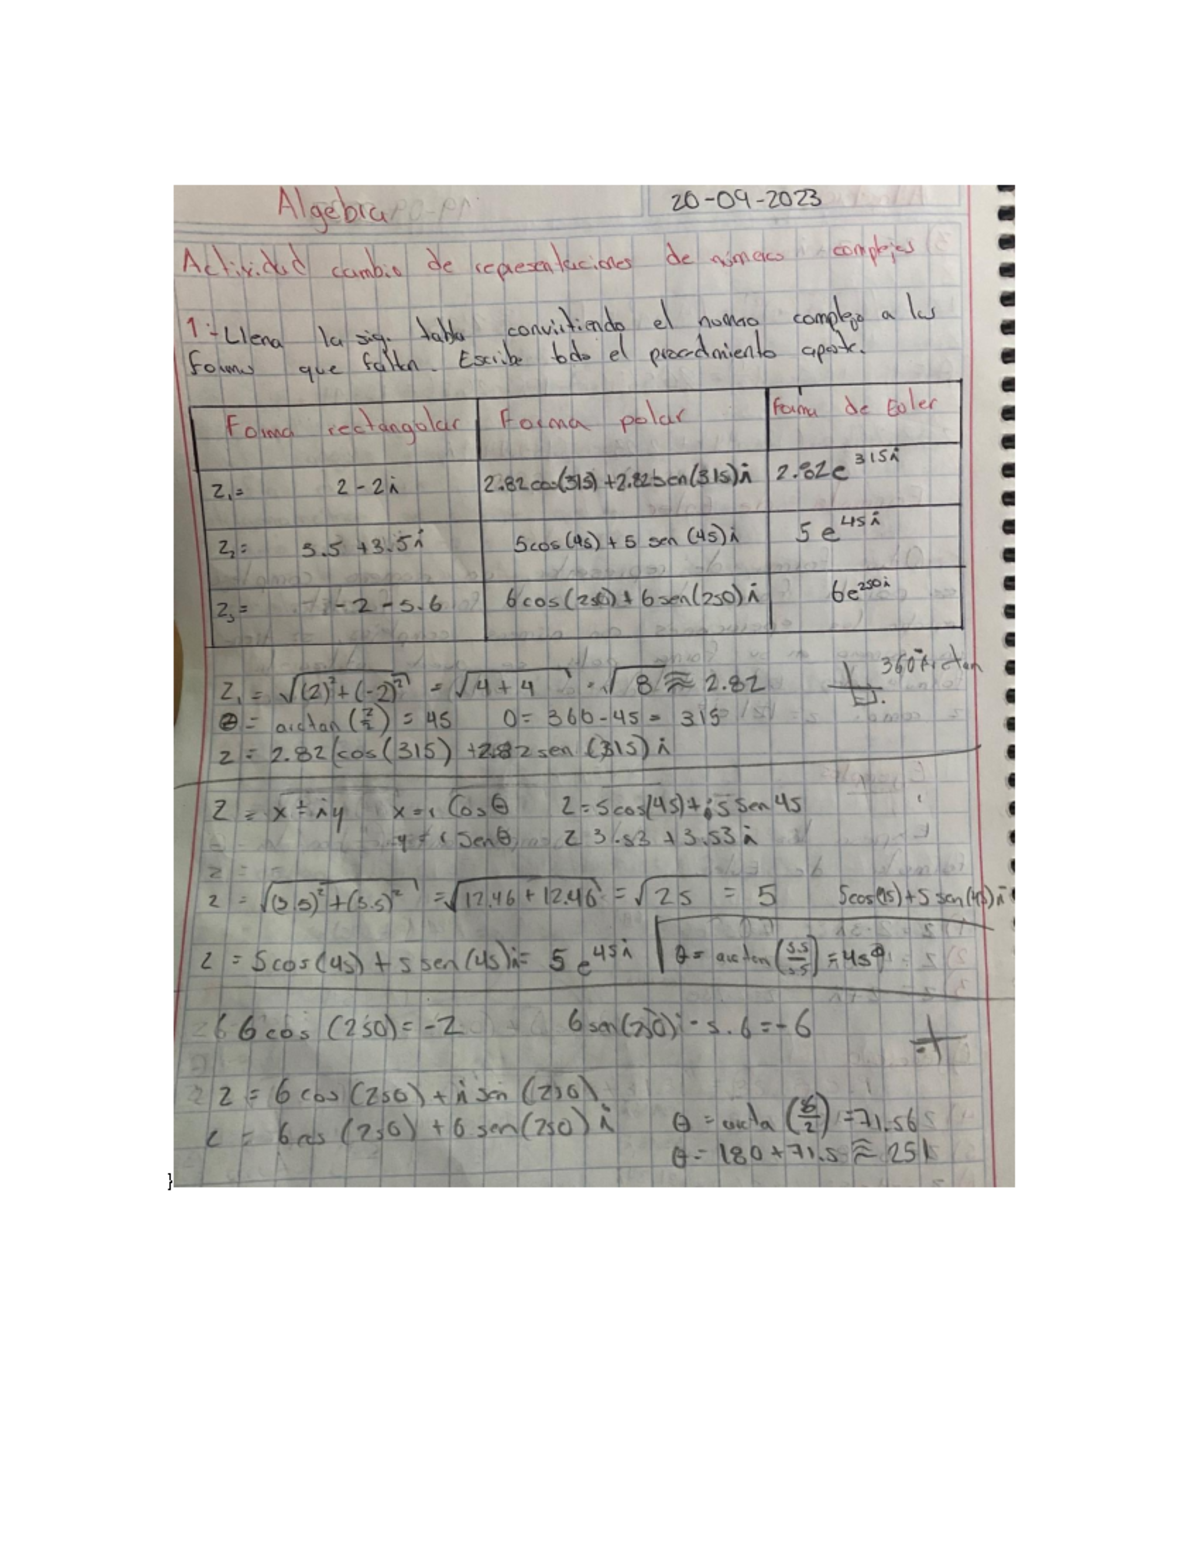 Algebra
20-09-2023
Actividad cambio de representaciones de números complejos
1.- Llena la sig. tabla convirtiendo el numero complejo a las
formas que faltan. Escribe todo el procedimiento aparte.
Forma rectangular Forma polar Forma de Euler
Z₁= 2-2i 2.82cos(315)+2.82sen(315)i 2.82e^315i
Z₂= 3.5+3.5i 5cos(45)+5 sen(45)i 5e^45i
Z₃= -2-5.6 6cos(250)+6sen(250)i 6e^250i
Z₁=√(2)²+(-2)² = √4+4 = √8 ≈ 2.82
θ= arctan(2/2)=45 θ=360-45=315
z=2.82(cos(315)+2.82sen(315)i
Z=x+iy x=r Cosθ Z=5cos(45)+i5 Sen45
y=r Senθ Z 3.53+3.53i
z=√(3.5)²+(3.5)² =√12.46+12.46 =√25 = 5 5cos(45)+5sen(45)i
z=5cos(45)+5sen(45)i=5e^45i θ=arctan(3.5/3.5)=45°
6cos(250)=-2 6sen(250)i-5.6=-6
z=6cos(250)+i sen(250)
z=6cos(250)+6sen(250)i θ=arcta(6/2)=71.56
θ=180+71.5≈251
}